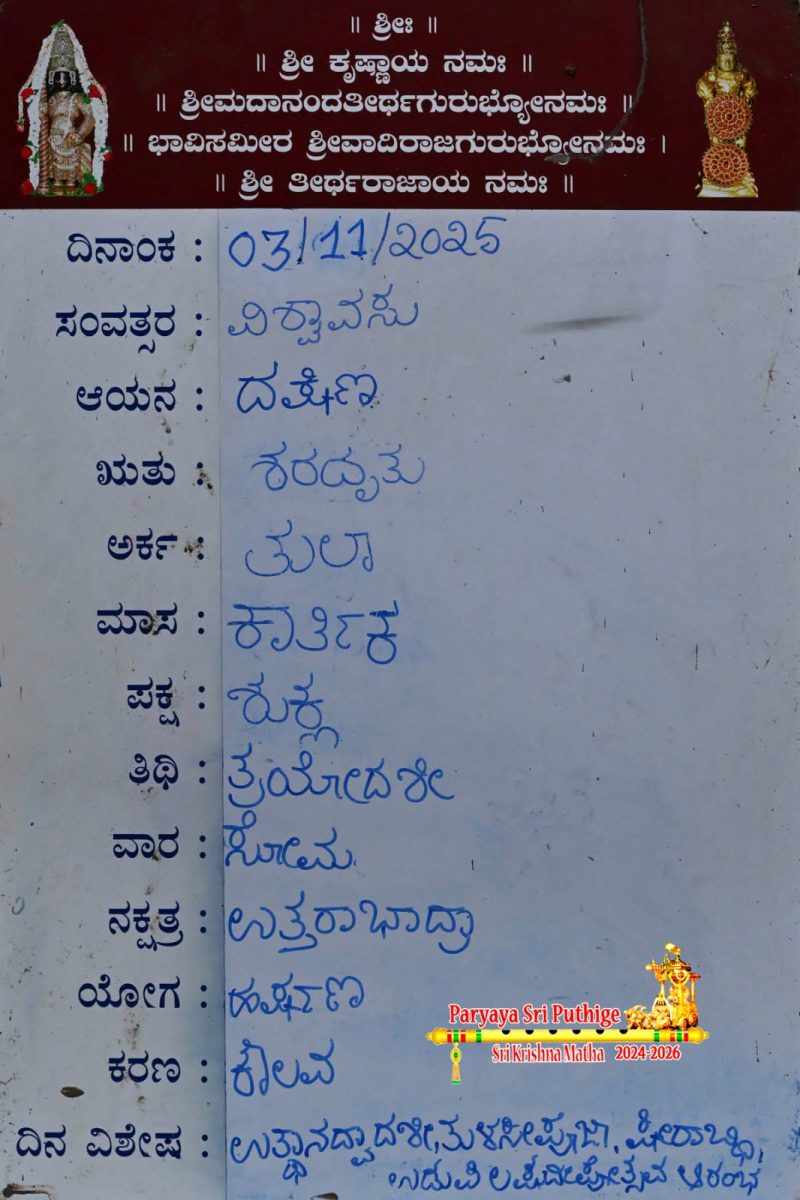 ॥ ಶ್ರೀಃ ॥
॥ ಶ್ರೀ ಕೃಷ್ಣಾಯ ನಮಃ ॥
॥ ಶ್ರೀಮದಾನಂದತೀರ್ಥಗುರುಭ್ಯೋನಮಃ ॥
॥ ಭಾವಿಸಮೀರ ಶ್ರೀವಾದಿರಾಜಗುರುಭ್ಯೋನಮಃ ।
॥ ಶ್ರೀ ತೀರ್ಥರಾಜಾಯ ನಮಃ ॥
ದಿನಾಂಕ : 03/11/2025
ಸಂವತ್ಸರ : ವಿಶ್ವಾವಸು
ಆಯನ : ದಕ್ಷಿಣ
ಋತು : ಶರದೃತು
ಅರ್ಕ : ತುಲಾ
ಮಾಸ : ಕಾರ್ತಿಕ
ಪಕ್ಷ : ಶುಕ್ಲ
ತಿಥಿ : ತ್ರಯೋದಶೀ
ವಾರ : ಸೋಮ
ನಕ್ಷತ್ರ : ಉತ್ತರಾಭಾದ್ರಾ
ಯೋಗ : ಹರ್ಷಣ
ಕರಣ : ಕೌಲವ
ದಿನ ವಿಶೇಷ : ಉತ್ಥಾನದ್ವಾದಶೀ, ತುಳಸೀಪೂಜಾ, ಕ್ಷೀರಾಬ್ಧಿ,
ಉಡುಪಿ ಲಕ್ಷದೀಪೋತ್ಸವ ಆರಂಭ
Paryaya Sri Puthige
Sri Krishna Matha 2024-2026